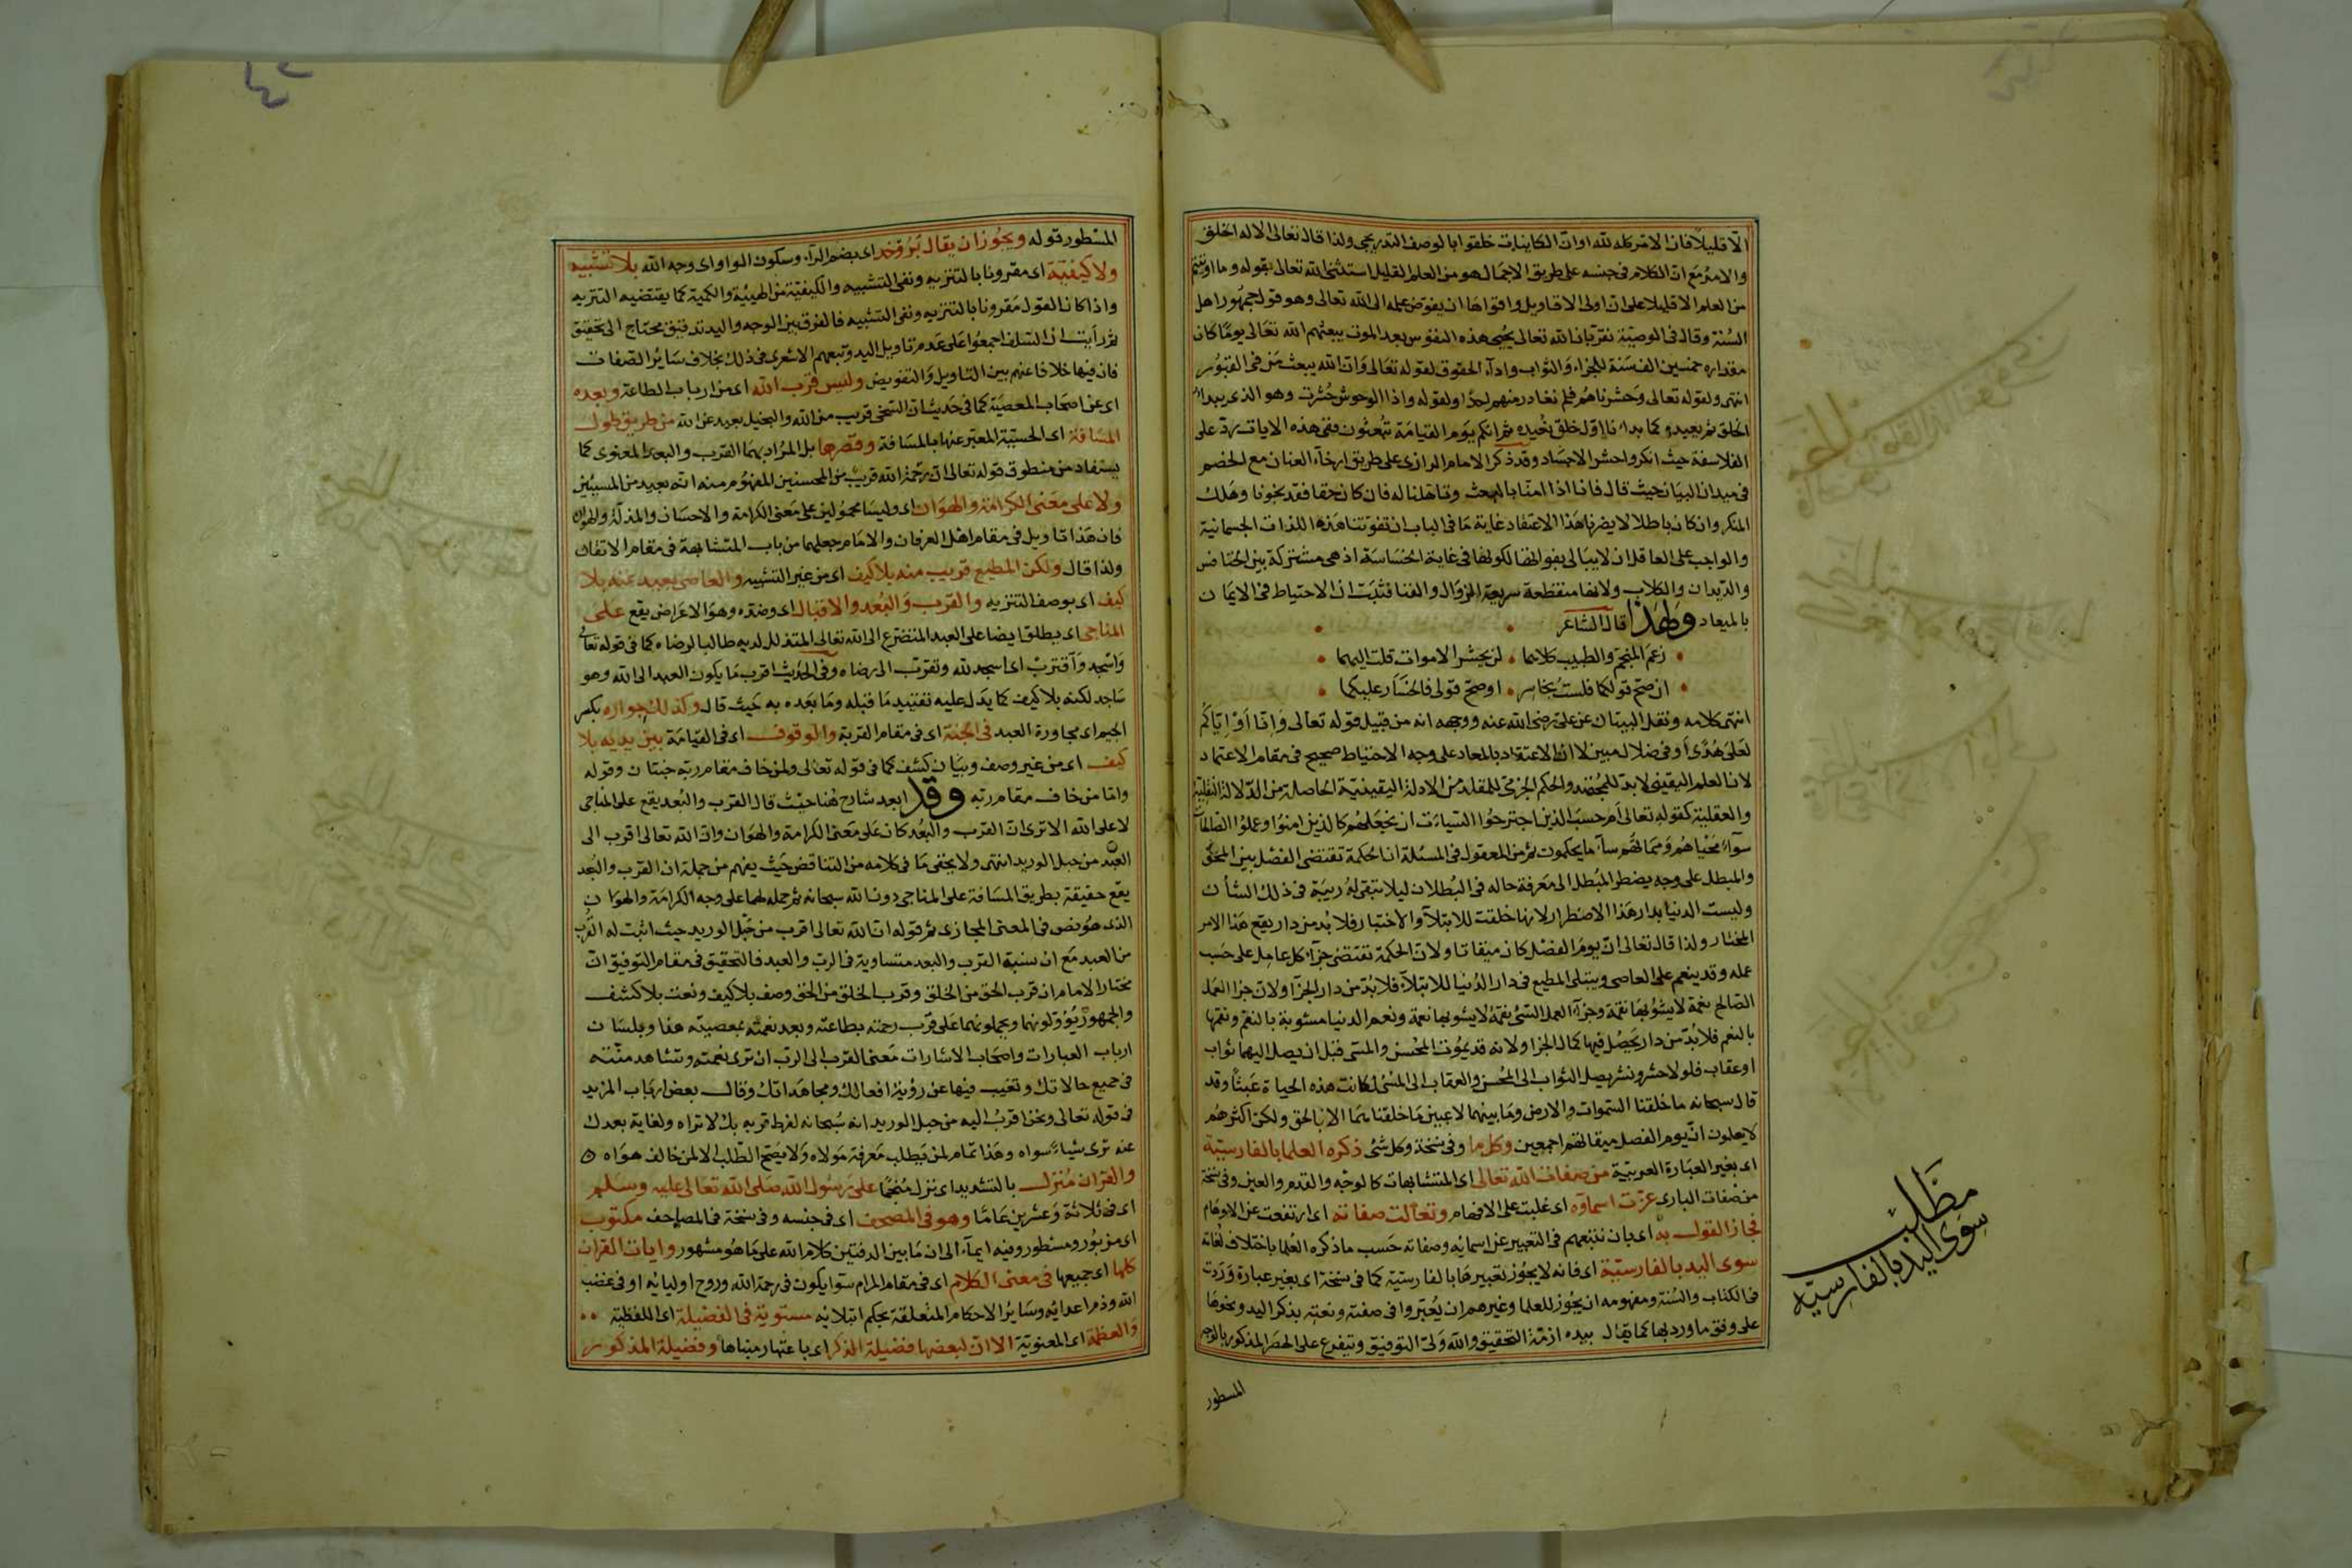 الا قليلا فان الامر كله لله او ان الكاينات خلقوا بالوصف التدريجى ولذا قال تعالى الا له الخلق
والامر مع ان الكلام فى جنسه على طريق الاجمال هو من العلم القليل استثنى الله تعالى بقوله وما اوتيتم
من العلم الا قليلا على ان اولى الاقاويل واقواها ان يفوض علمه الى الله تعالى وهو قول جمهور اهل
السنة وقال فى الوصية نقر بان الله تعالى يحيى هذه النفوس بعد الموت يبعثهم الله تعالى يوما كان
مقداره خمسين الف سنة للجزاء والثواب واداء الحقوق لقوله تعالى وان الله يبعث من فى القبور
انتهى ولقوله تعالى وحشرناهم فلم نغادر منهم احدا ولقوله واذا الوحوش حشرت وهو الذى يبدا
الخلق ثم يعيده كما بدانا اول خلق نعيده ثم انكم يوم القيامة تبعثون ففى هذه الايات رد على
الفلاسفة حيث انكروا حشر الاجساد وقد ذكر الامام الرازى على طريق ارخاء العنان مع الخصم
فى ميدان البيان حيث قال فانا اذا امنا بالبعث وتاهلنا له فان كان حقا فقد نجونا وهلك
المنكر وان كان باطلا لا يضرنا هذا الاعتقاد غاية ما فى الباب ان تفوتنا هذه اللذات الجسمانية
والواجب على العاقل ان لا يبالى بفواتها لكونها فى غاية الخساسة اذ هى مشتركة بين الخنافس
والديدان والكلاب ولانها منقطعة سريعة الزوال والفنا فثبت ان الاحتياط فى الايمان
بالميعاد ولهذا قال الشاعر
زعم المنجم والطبيب كلاهما لن يحشر الاموات قلت اليهما
ان صح قولكما فلست بخاسر او صح قولى فالخسار عليكما
انتهى كلامه ونقل البيتان عن على رضى الله عنه ووجهه انه من قبيل قوله تعالى وانا او اياكم
لعلى هدى او فى ضلال مبين لا ان الاعتقاد بالمعاد على وجه الاحتياط صحيح فى مقام الاعتماد
لان العلم اليقينى لا بد للمجتهد والحكم الجزمى للمقلد من الادلة اليقينية الحاصلة من الدلالة النقلية
والعقلية كقوله تعالى ام حسب الذين اجترحوا السيئات ان نجعلهم كالذين امنوا وعملوا الصالحات
سواء محياهم ومماتهم ساء ما يحكمون ثم من المعقول فى المسئلة ان الحكمة تقتضى الفصل بين المحق
والمبطل على وجه يضطر المبطل الى معرفة حاله فى البطلان ليلا تبقى له ريبة فى ذلك الشان
وليست الدنيا بدار هذا الاضطرار لانها خلقت للابتلاء والاختبار فلا بد من دار يقع هذا الامر
المختار ولذا قال تعالى ان يوم الفصل كان ميقاتا ولان الحكمة تقتضى جزاء كل عامل على حسب
عمله وقد ينعم على العاصى ويبتلى المطيع فى دار الدنيا للابتلاء فلا بد من دار الجزا ولان جزا العمل
الصالح نعمة لا يشوبها نقمة وجزاء العمل السىء نقمة لا يشوبها نعمة ونعم الدنيا مشوبة بالنقم ونقمها
بالنعم فلا بد من دار يحصل فيها كمال الجزا ولانه قد يموت المحسن والمسى قبل ان يصل اليهما ثواب
او عقاب فلولا حشر ونشر يصل الثواب الى المحسن والعقاب الى المسى لكانت هذه الحياة عبثا وقد
قال سبحانه ما خلقنا السموات والارض وما بينهما لاعبين ما خلقناهما الا بالحق ولكن اكثرهم
لا يعلمون ان يوم الفصل ميقاتهم اجمعين وكل ما وفى نسخة وكل شئ ذكره العلما بالفارسية
اى بغير العبارة العربية من صفات الله تعالى اى المتشابهات كالوجه والقدم والعين وفى نسخة
من صفات البارى عزت اسماؤه اى غلبت على الافهام وتعالت صفاته اى ارتفعت عن الاوهام
فجاز القول به اى بان نتبعهم فى التعبير عن اسمائه وصفاته حسب ما ذكره العلما باختلاف لغاته
سوى اليد بالفارسية اى فانه لا يجوز تعبيرها بالفارسية كما فى نسخة اى بغير عبارة وردت
فى الكتاب والسنة ومفهومه ان يجوز للعلما وغيرهم ان يعبروا فى صفته ونعته بذكر اليد ونحوها
على وفق ما ورد بها كما يقال بيده ازمة التحقيق والله ولى التوفيق ويتفرع على الحصر المذكور بالوجه
المسطور
مطلب
سوى اليد بالفارسيه
المسطور قوله ويجوز ان يقال بروى خدا اى بضم الراء وسكون الواو اى وجه الله بلا تشبيه
ولا كيفية اى مقرونا بالتنزيه ونفى التشبيه والكيفية من الهيئة والكمية كما يقتضيه التنزيه
واذا كان القول مقرونا بالتنزيه ونفى التشبيه فالفرق بين الوجه واليد تدقيق محتاج الى تحقيق
ثم رأيت ان السلف اجمعوا على عدم تاويل اليد وتبعهم الاشعرى فى ذلك بخلاف سائر الصفات
فان فيها خلافا عنهم بين التاويل والتفويض وليس قرب الله اى من ارباب الطاعة وبعده
اى عن اصحاب المعصية كما فى حديث ان السخى قريب من الله والبخيل بعيد عن الله من طريق طول
المسافة اى الحسية المعبر عنها بالمسافة وقصرها بل المراد بهما القرب والبعد المعنوى كما
يستفاد من منطوق قوله تعالى ان رحمة الله قريب من المحسنين المفهوم منه انه بعيد من المسيئين
ولا على معنى الكرامة والهوان اى وليسا محمولين على معنى الكرامة والاحسان والمذلة والهوان
فان هذا تاويل فى مقام اهل العرفان والامام جعلهما من باب المتشابهة فى مقام الاتقان
ولذا قال ولكن المطيع قريب منه بلا كيف اى من غير التشبيه والعاصى بعيد عنه بلا
كيف اى بوصف التنزيه والقرب والبعد والاقبال اى وضده وهو الاعراض يقع على
المناجى اى يطلق ايضا على العبد المتضرع الى الله تعالى المتذلل لديه طالبا لرضاه كما فى قوله تعالى
واسجد واقترب اى اسجد لله وتقرب الى رضاه وفى الحديث اقرب ما يكون العبد الى الله وهو
ساجد لكنه بلا كيف كما يدل عليه تقييد ما قبله وما بعده به حيث قال وكذلك جواره بكسر
الجيم اى مجاورة العبد فى الجنة اى فى مقام القربة والوقوف اى فى القيامة بين يديه بلا
كيف اى من غير وصف وبيان كشف كما فى قوله تعالى ولمن خاف مقام ربه جنتان وقوله
واما من خاف مقام ربه وقد ابعد شارح هنا حيث قال القرب والبعد يقع على المناجى
لا على الله الا ترى ان القرب والبعد كان على معنى الكرامة والهوان وان الله تعالى اقرب الى
العبد من حبل الوريد انتهى ولا يخفى ما فى كلامه من التناقض حيث يفهم من جملة ان القرب والبعد
يقع حقيقة بطريق المسافة على المناجى دون الله سبحانه ثم حمله لهما على وجه الكرامة والهوان
الذى هو نص فى المعنى المجازى ثم قوله ان الله تعالى اقرب من حبل الوريد حيث اثبت له القرب
من العبد مع ان نسبة القرب والبعد متساوية فى الرب والعبد فالتحقيق فى مقام التوفيق ان
مختار الامام ان قرب الحق من الخلق وقرب الخلق من الحق وصف بلا كيف ونعت بلا كشف
والجمهور يؤولونهما ويحملونهما على قرب رحمته بطاعته وبعد نعمته بمعصيته هذا وبلسان
ارباب العبارات واصحاب الاشارات معنى القرب الى الرب ان ترى نعمته وتشاهد منته
فى جميع حالاتك وتغيب فيها عن رؤية افعالك ومجاهداتك وقال بعض ارباب المزيد
فى قوله تعالى ونحن اقرب اليه من حبل الوريد انه سبحانه لفرط قربه بك لا تراه ولغاية بعدك
عنه ترى شيئا سواه وهذا تمام لمن يطلب معرفة مولاه ولا يصح الطلب الا لمن خالف هواه
والقران منزل بالتشديد اى نزل منجما على رسول الله صلى الله تعالى عليه وسلم
اى فى ثلاثة وعشرين عاما وهو فى المصحف اى فى جنسه وفى نسخة فى المصاحف مكتوب
اى مزبور ومسطور وفيه ايماء الى ان ما بين الدفتين كلام الله على ما هو مشهور وايات القران
كلها اى جميعها فى معنى الكلام اى فى مقام المرام سوا يكون فى رحمة الله وروح اوليائه او فى غضب
الله وذم اعدائه وسائر الاحكام المتعلقة بحكم ابتلائه مستوية فى الفضيلة اى اللفظية
والعظمة اى المعنوية الا ان لبعضها فضيلة الذكر اى باعتبار مبناها وفضيلة المذكور